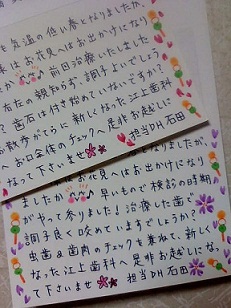 も気温の低い春となりましたが、
はお花見へはお出かけになり
ましたか 前回治療いたしました
右左の親知らず、調子よいでしょう
？歯石は付き始めていないですか？
散歩がてらに新しくなった江上歯科
へお口全体のチェックへ是非お越しに
なって下さいませ 担当DH石田
となりましたが、
はお花見へはお出かけになり
ましたか 早いもので検診の時期
がやって参りました！治療した歯で
調子良く咬めていますでしょうか？
虫歯&歯肉のチェックを兼ねて、新しく
なった江上歯科へ是非お越しになっ
て下さいませ 担当DH石田